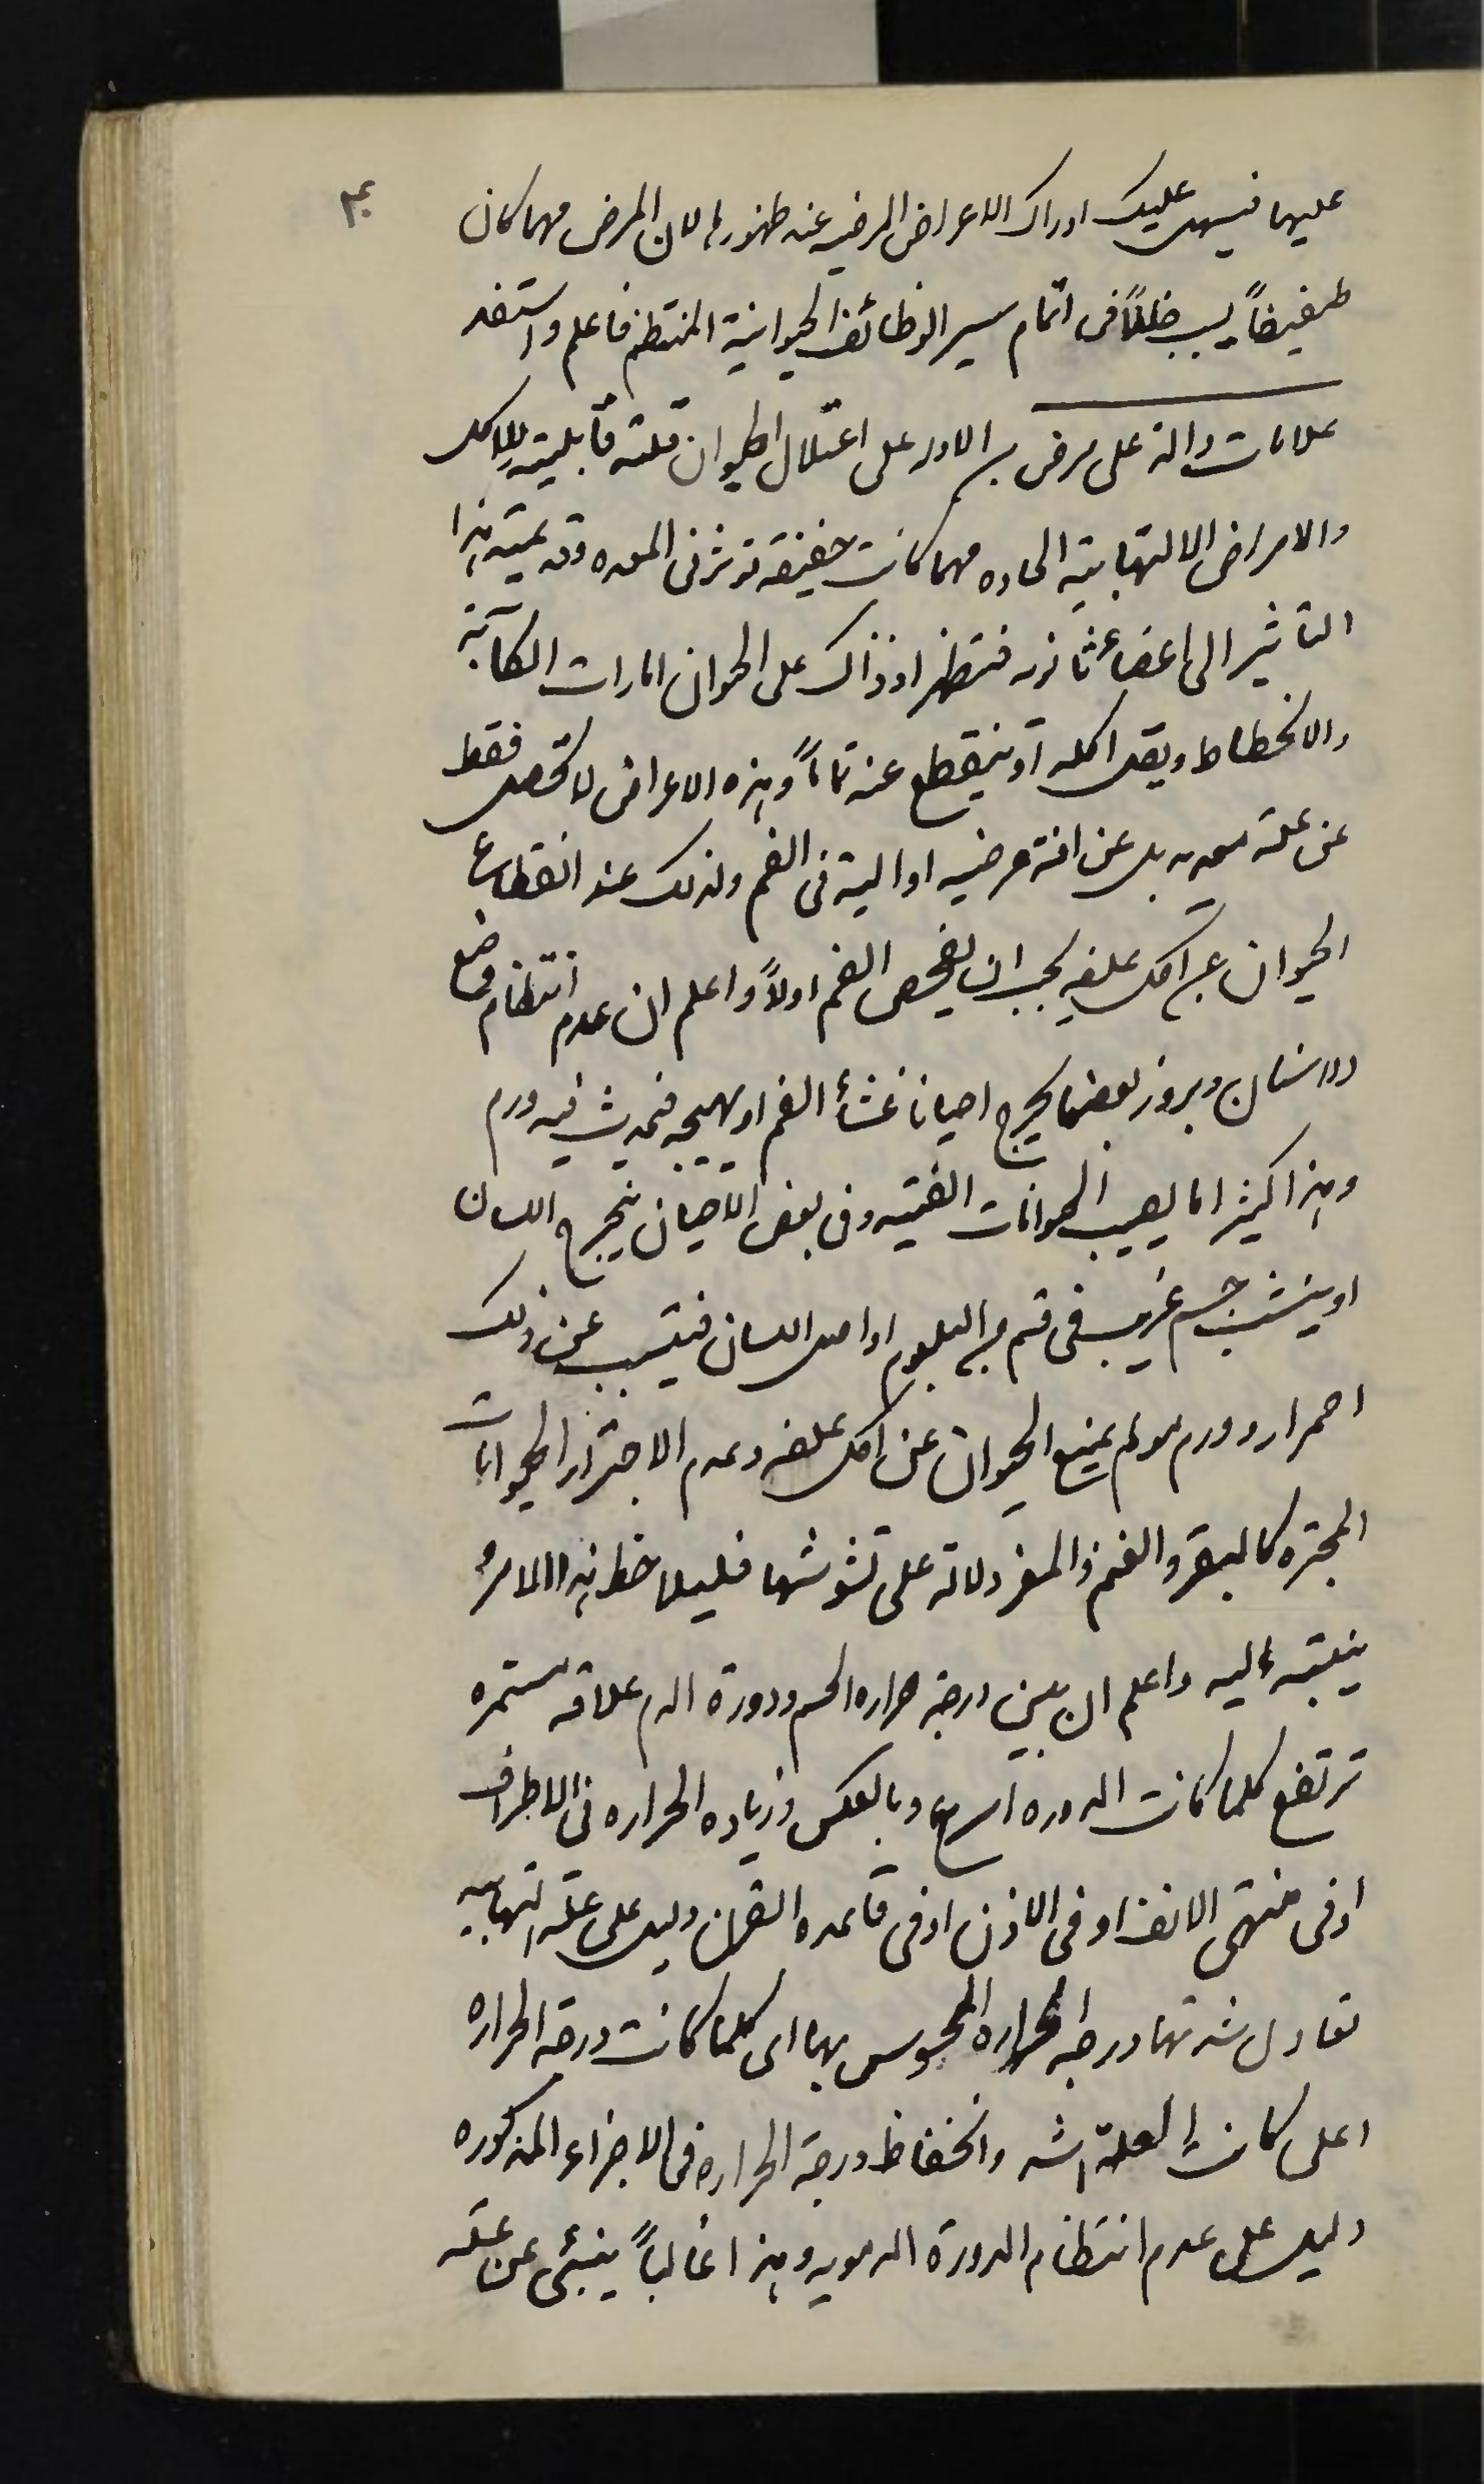 عليها فيسهل عليك ادراك الاعراض المرضيه عند ظهورها لان المرض مهما كان
طفيفاً يسبب خللاً فى اتمام سير الوظائف الحيوانية المنتظم فاعلم واستفد
علامات دالة على مرض الاول على اعتلال الحيوان قلة قابليته للاكل
والامراض الالتهابية الحاده مهما كانت خفيفة تؤثر فى المعده وقد يمتد هذا
التأثير الى اعضاء ثانويه فتظهر اذ ذاك على الحيوان امارات الكآبة
والانحطاط ويقل اكله او ينقطع عنه تماماً وهذه الاعراض لا تحصل فقط
عن علة معديه بل عن افة مرضيه او الية فى الفم ولذلك عند انقطاع
الحيوان عن اكل علفه يجب ان يفحص الفم اولاً واعلم ان عدم انتظام وضع
الاسنان وبروز بعضها يجرح احيانا غشأ الفم او يهيجه فيحدث فيه ورم
وهذا كثيرا ما يصيب الحيوانات الفتيه وفى بعض الاحيان ينجرح اللسان
او ينشب جسم غريب فى قسم من البلعوم او اصل اللسان فيتسبب عن ذلك
احمرار وورم مولم يمنع الحيوان عن اكل علفه وعدم الاجترار الحيوانات
المجتره كالبقر والغنم والمعز دلالة على تشوشها فليلاحظ هذا الامر
ينتبه اليه واعلم ان بين درجة حراره الجسم ودورة الدم علاقه مستمره
ترتفع كلما كانت الدوره اسرع وبالعكس وزياده الحراره فى الاطراف
او فى منتهى الانف او فى الاذن او فى قاعده القرن دليل على علة التهابيه
تعادل شدتها درجة الحراره المحسوس بها اى كلما كانت درجة الحراره
اعلى كانت العلة اشد وانخفاظ درجة الحراره فى الاجزاء المذكوره
دليل على عدم انتظام الدورة الدمويه وهذا غالباً ينبئ عن علة